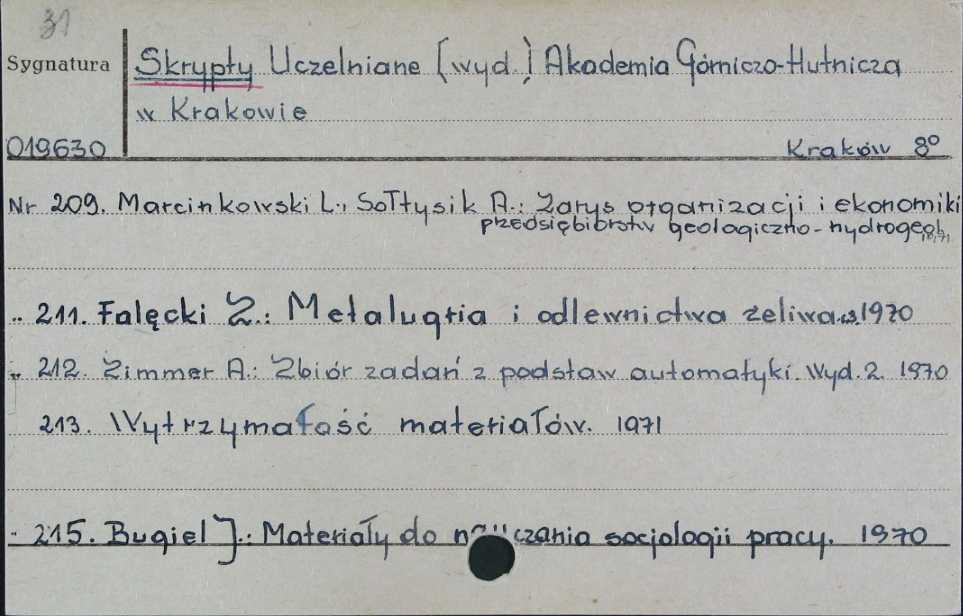 31
Sygnatura Skrypty Uczelniane (wyd.) Akademia Górniczo-Hutnicza
w Krakowie
019630 Kraków 8°
Nr 209. Marcinkowski L., Sołtysik A.: Zarys organizacji i ekonomiki
przedsiębiorstw geologiczno-hydrogeol.
" 211. Falęcki Z.: Metalugria i odlewnictwa żeliwa. 1970
" 212. Zimmer A.: Zbiór zadań z podstaw automatyki. Wyd. 2. 1970
213. Wytrzymałość materiałów. 1971
215. Bugiel J.: Materiały do nauczania socjologii pracy. 1970